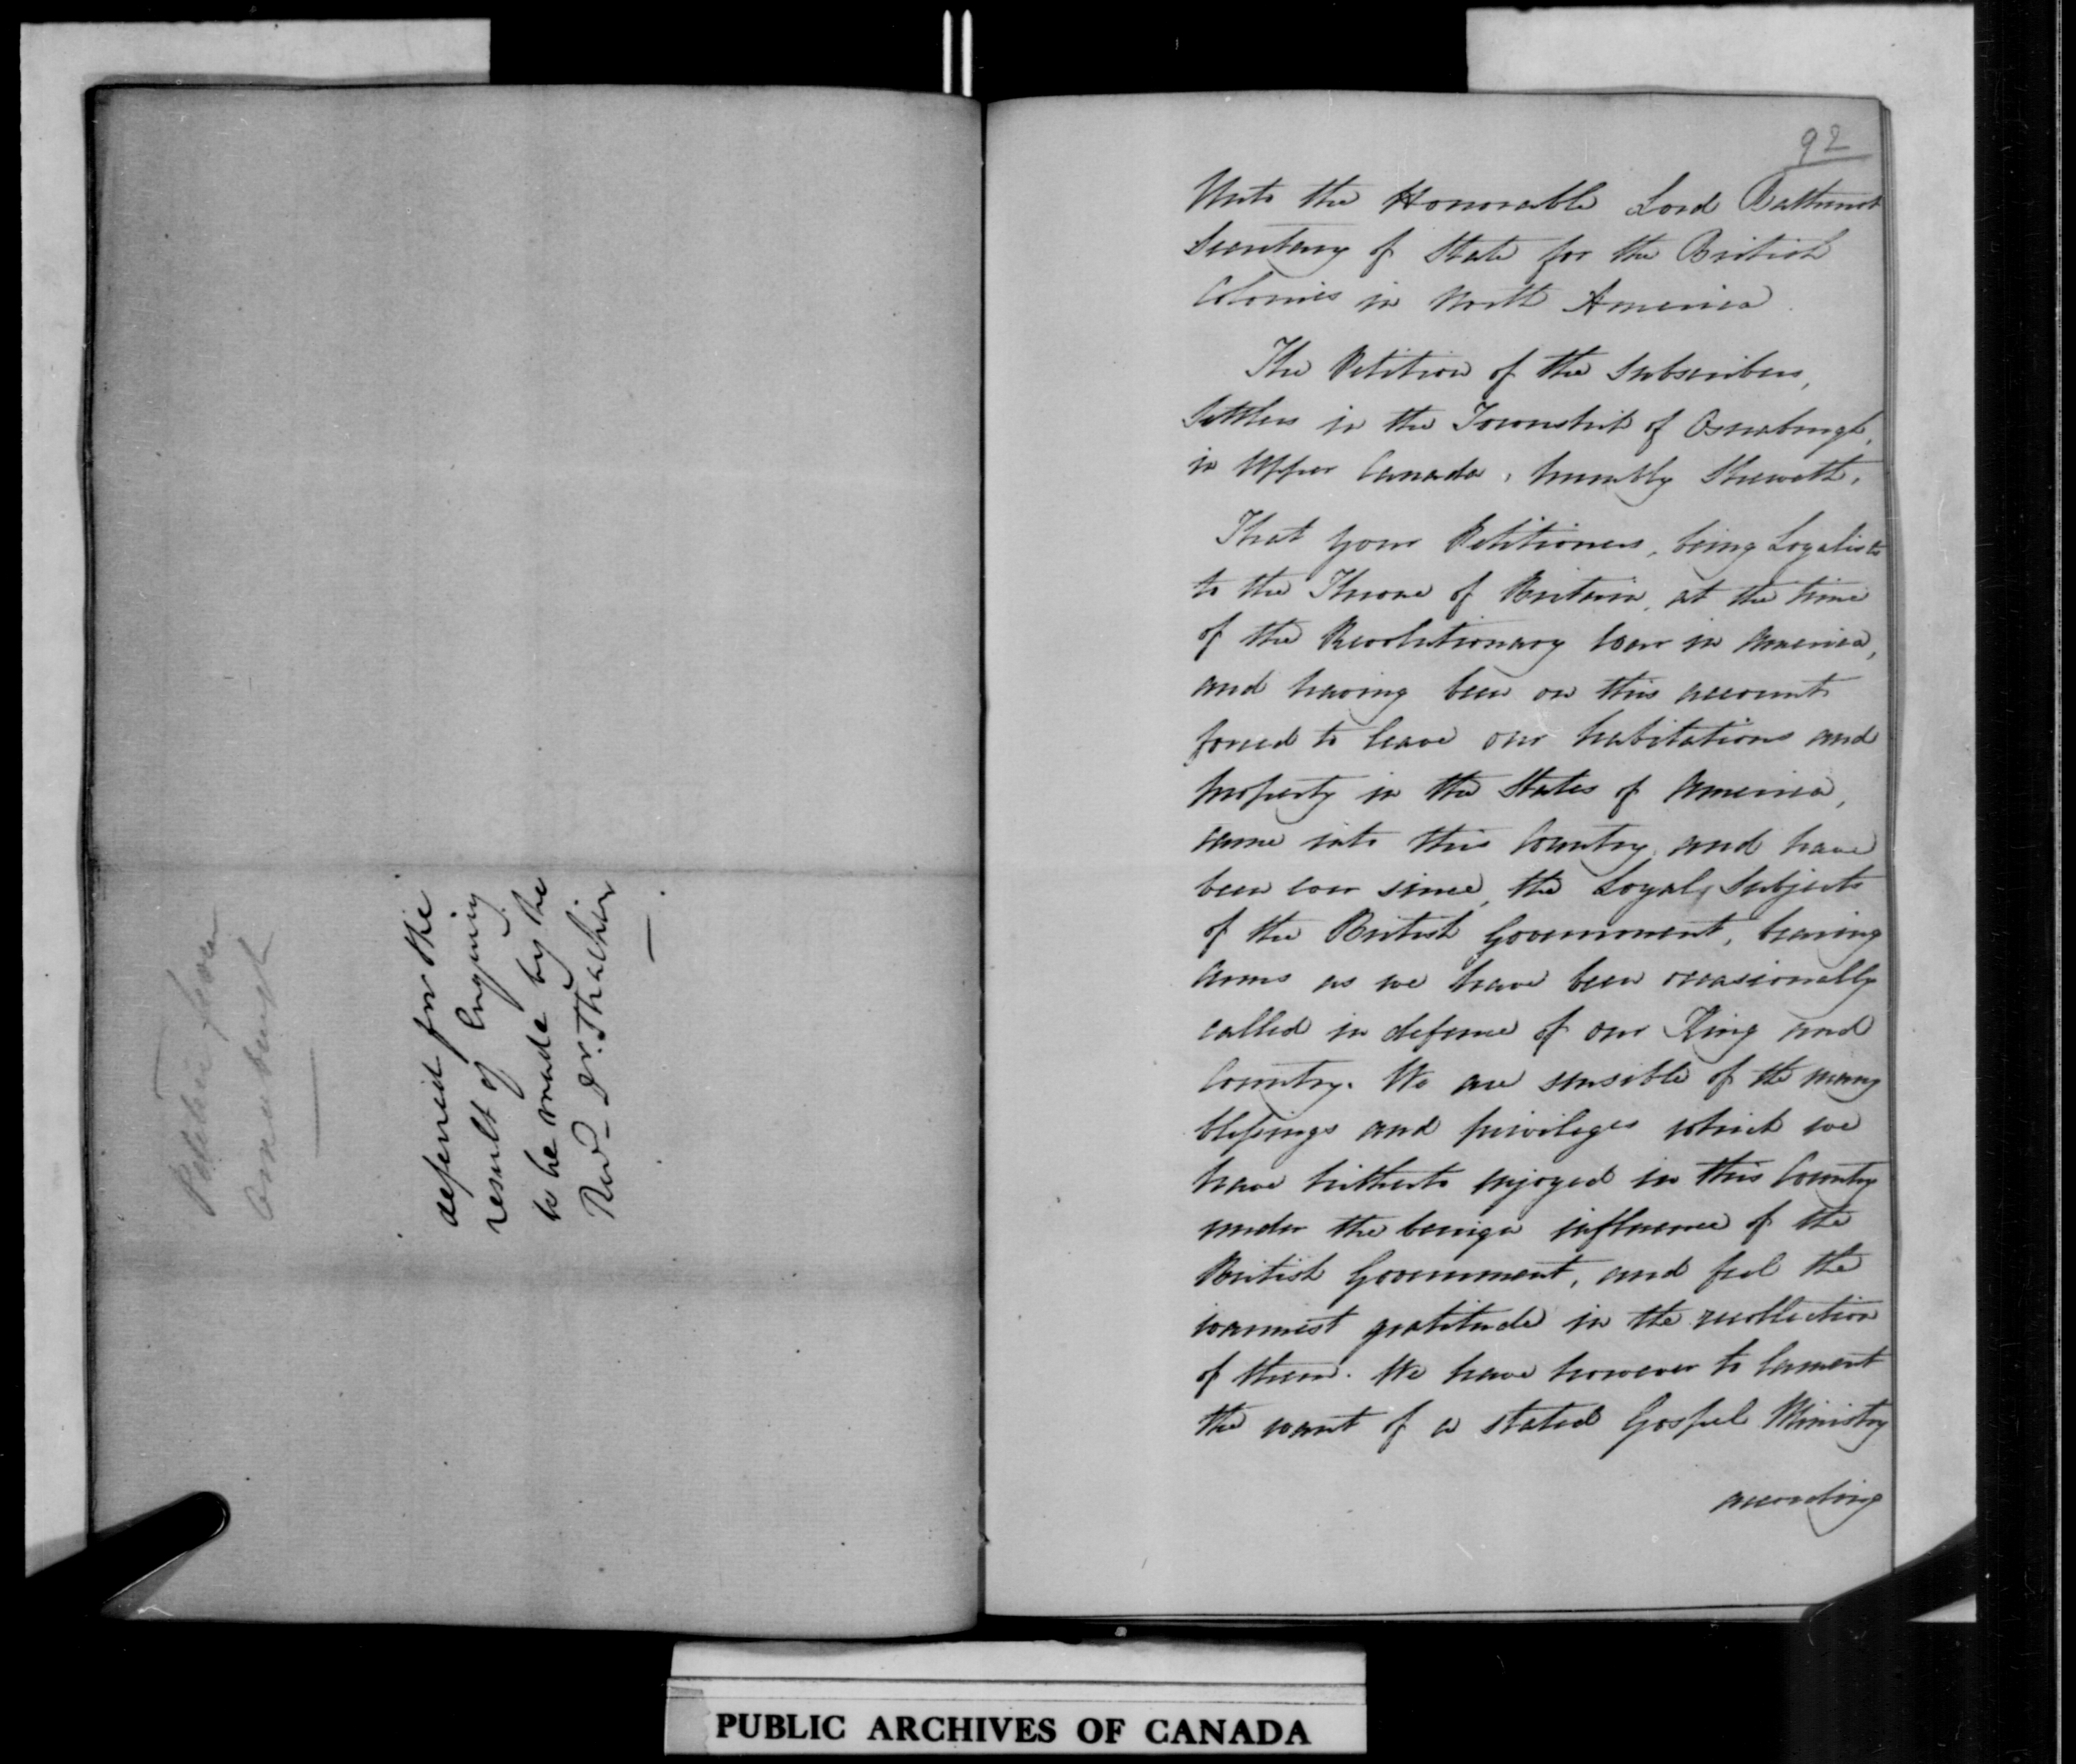 Petition from
Osnaburgh
deferred for the
result of Enquiry
to be made by the
Revd Dr. Strachan
92
Unto the Honorable Lord Bathurst
Secretary of State for the British
Colonies in North America.
The Petition of the Subscribers,
Settlers in the Township of Osnaburgh,
in Upper Canada, humbly Sheweth,
That your Petitioners, being Loyalists
to the Throne of Britain, at the time
of the Revolutionary War in America,
and having been on this account
forced to leave our habitations and
property in the States of America,
came into this Country and have
been ever since, the Loyal Subjects
of the British Government, bearing
Arms as we have been occasionally
called in defence of our King and
Country. We are sensible of the many
blessings and privileges which we
have hitherto enjoyed in this Country
under the benign influence of the
British Government, and feel the
warmest gratitude in the recollection
of them. We have however to lament
the want of a stated Gospel Ministry
according
PUBLIC ARCHIVES OF CANADA